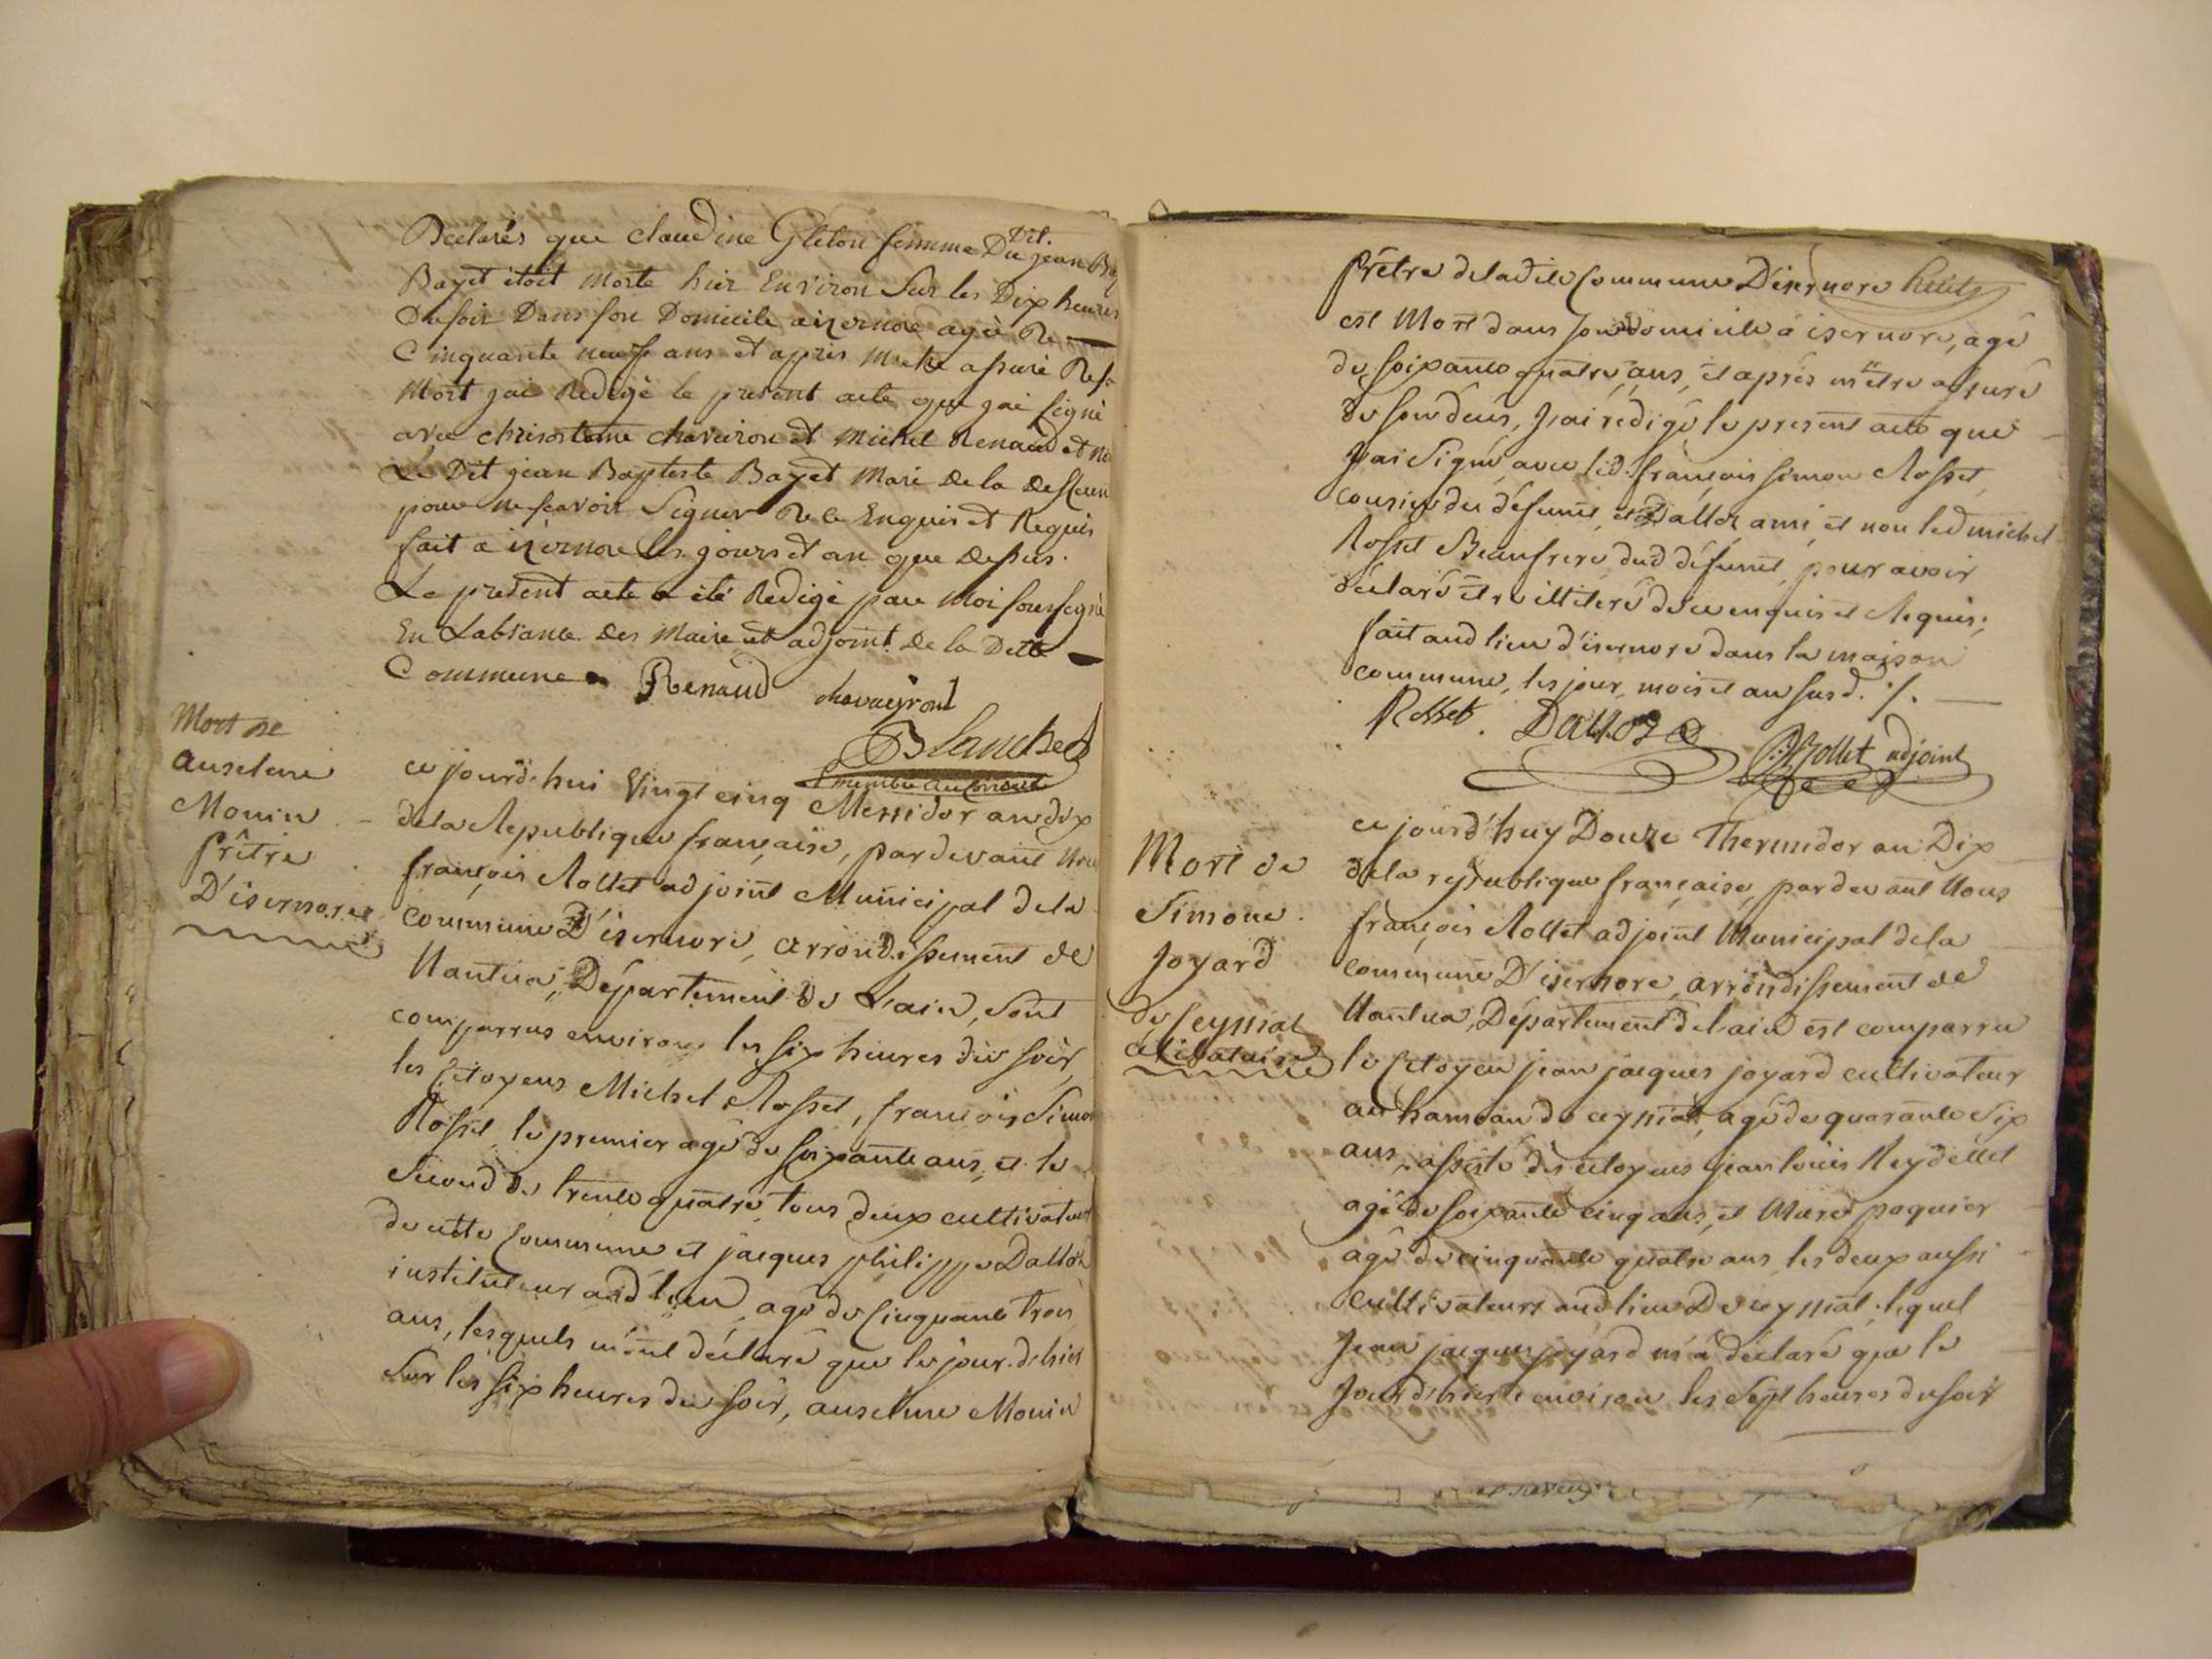 Declarés que claudine Gleton femme Du Dit. jean
Bayet étoit Morte hier Environ Sur les Dix heures
Du soir Dans son Domicile a izernore agée De
Cinquante neuf ans et apprès Metre assuré De sa
Mort jai Redigé le present acte que jai signé
avec chrisostome chavairon et Michel Renaud et non
Le Dit jean Bapteste Bayet Mari de la
pour ne scavoir Signer De ce Enquis et Requis
fait a izernore les jours et an que Dessus.
Le present acte a été Redigé par Moi soussigné
En Labsance des Maire et adjoint de la Dette
Commune Renaud
Blanchet
Mort de
anselme
Monin
Prêtre
D'isernore
ce jourd'hui Vingt cinq Messidor an dix
de la Republique française, pardevant Nous
françois Rollet adjoint Municipal de la
commune D'isernore, arrondissement de
Nantua, Département de L'ain, sont
comparrus environ les six heures du soir,
les Citoyens Michel Rosset, françois Simon
Rosset, le premier agé de soixante ans, et le
second de trente quatre, tous deux cultivateurs
de cette commune et jacques philippe Dalloz
instituteur aud lieu, agé de cinquante trois
ans, lesquels m'ont déclaré que le jour d'hier
sur les six heures du soir, anselme Monin
Prêtre de la dite Commune D'isernore
est Mort dans son domicile à isernore, agé
de soixante quatre ans, et aprés m'être assuré
de son décés, j'ai rédigé le present acte que
j'ai signé avec led. françois simon Rosset,
cousin du défunt, et Dalloz ami, et non led michel
Rosset Beaufrere dud défunt, pour avoir
déclaré être illiteré de ce enquis et Requis;
fait aud lieu d'isernore dans la maison
commune, les jour, mois et an susd. ./.
Rosset. Dalloz Rollet adjoint
Mort de
Simone
Joyard
de Ceyssiat
celibataire
ce jourd'huy Douze Thermidor an Dix
de la republique française, pardevant Nous
françois Rollet adjoint Municipal de la
commune D'isernore, arrondissement de
Nantua, Département de l'ain est comparru
le Citoyen jean jacques joyard cultivateur
au hameau de ceyssiat, agé de quarante six
ans, assisté des citoyens jean louis Reydellet
agé de soixante cinq ans, et paquier
agé de cinquante quatre ans, les deux aussi
cultivateurs aud lieu De ceyssiat, lequel
Jean jacques joyard m'a déclaré que le
Jour d'hier environ les sept heures du soir